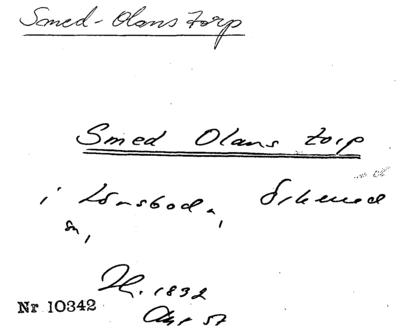 Smed-Olans torp
Smed Olans torp
i Lönsboda,
sn,
H. 1832
Nr 10342